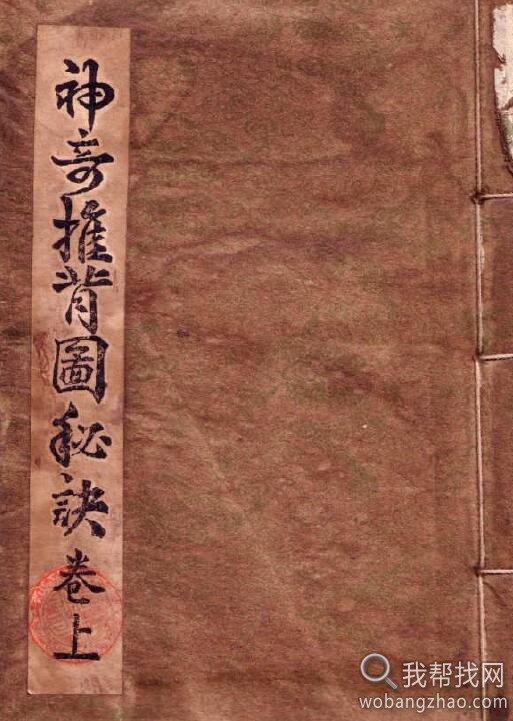 神奇推背圖秘訣卷上
我帮找网
wobangzhao.com